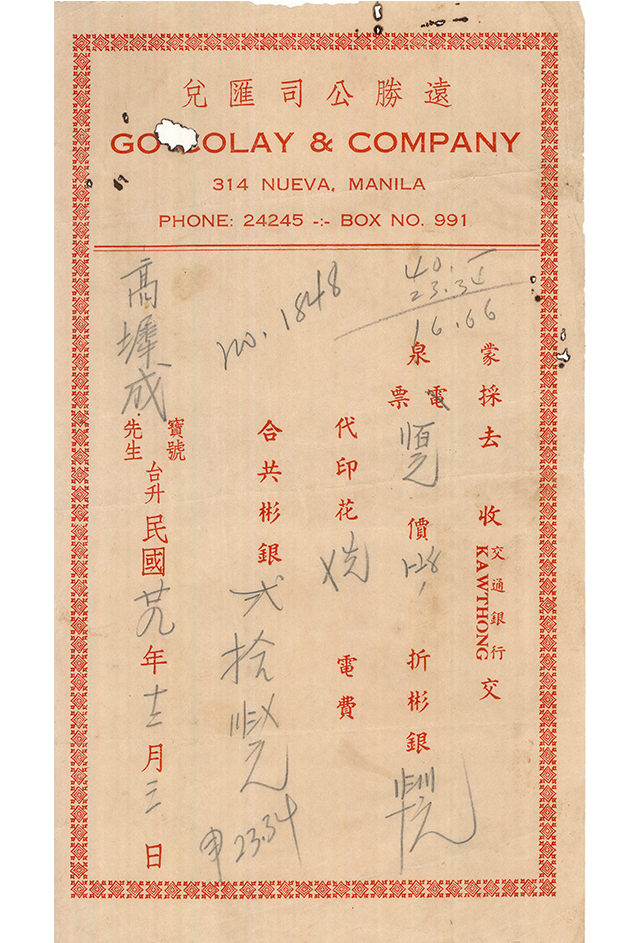 遠勝公司匯兌
GO OLAY & COMPANY
314 NUEVA, MANILA
PHONE: 24245 -:- BOX NO. 991
40.—
23.34
16.66
no. 1848
蒙採去 收 交通銀行 KAWTHONG 交
泉電票 價 折彬銀
代印花 電費
合共彬銀 弍拾
申 23.34
高墀成 寶號 先生 台升
民國廿九年十二月三日